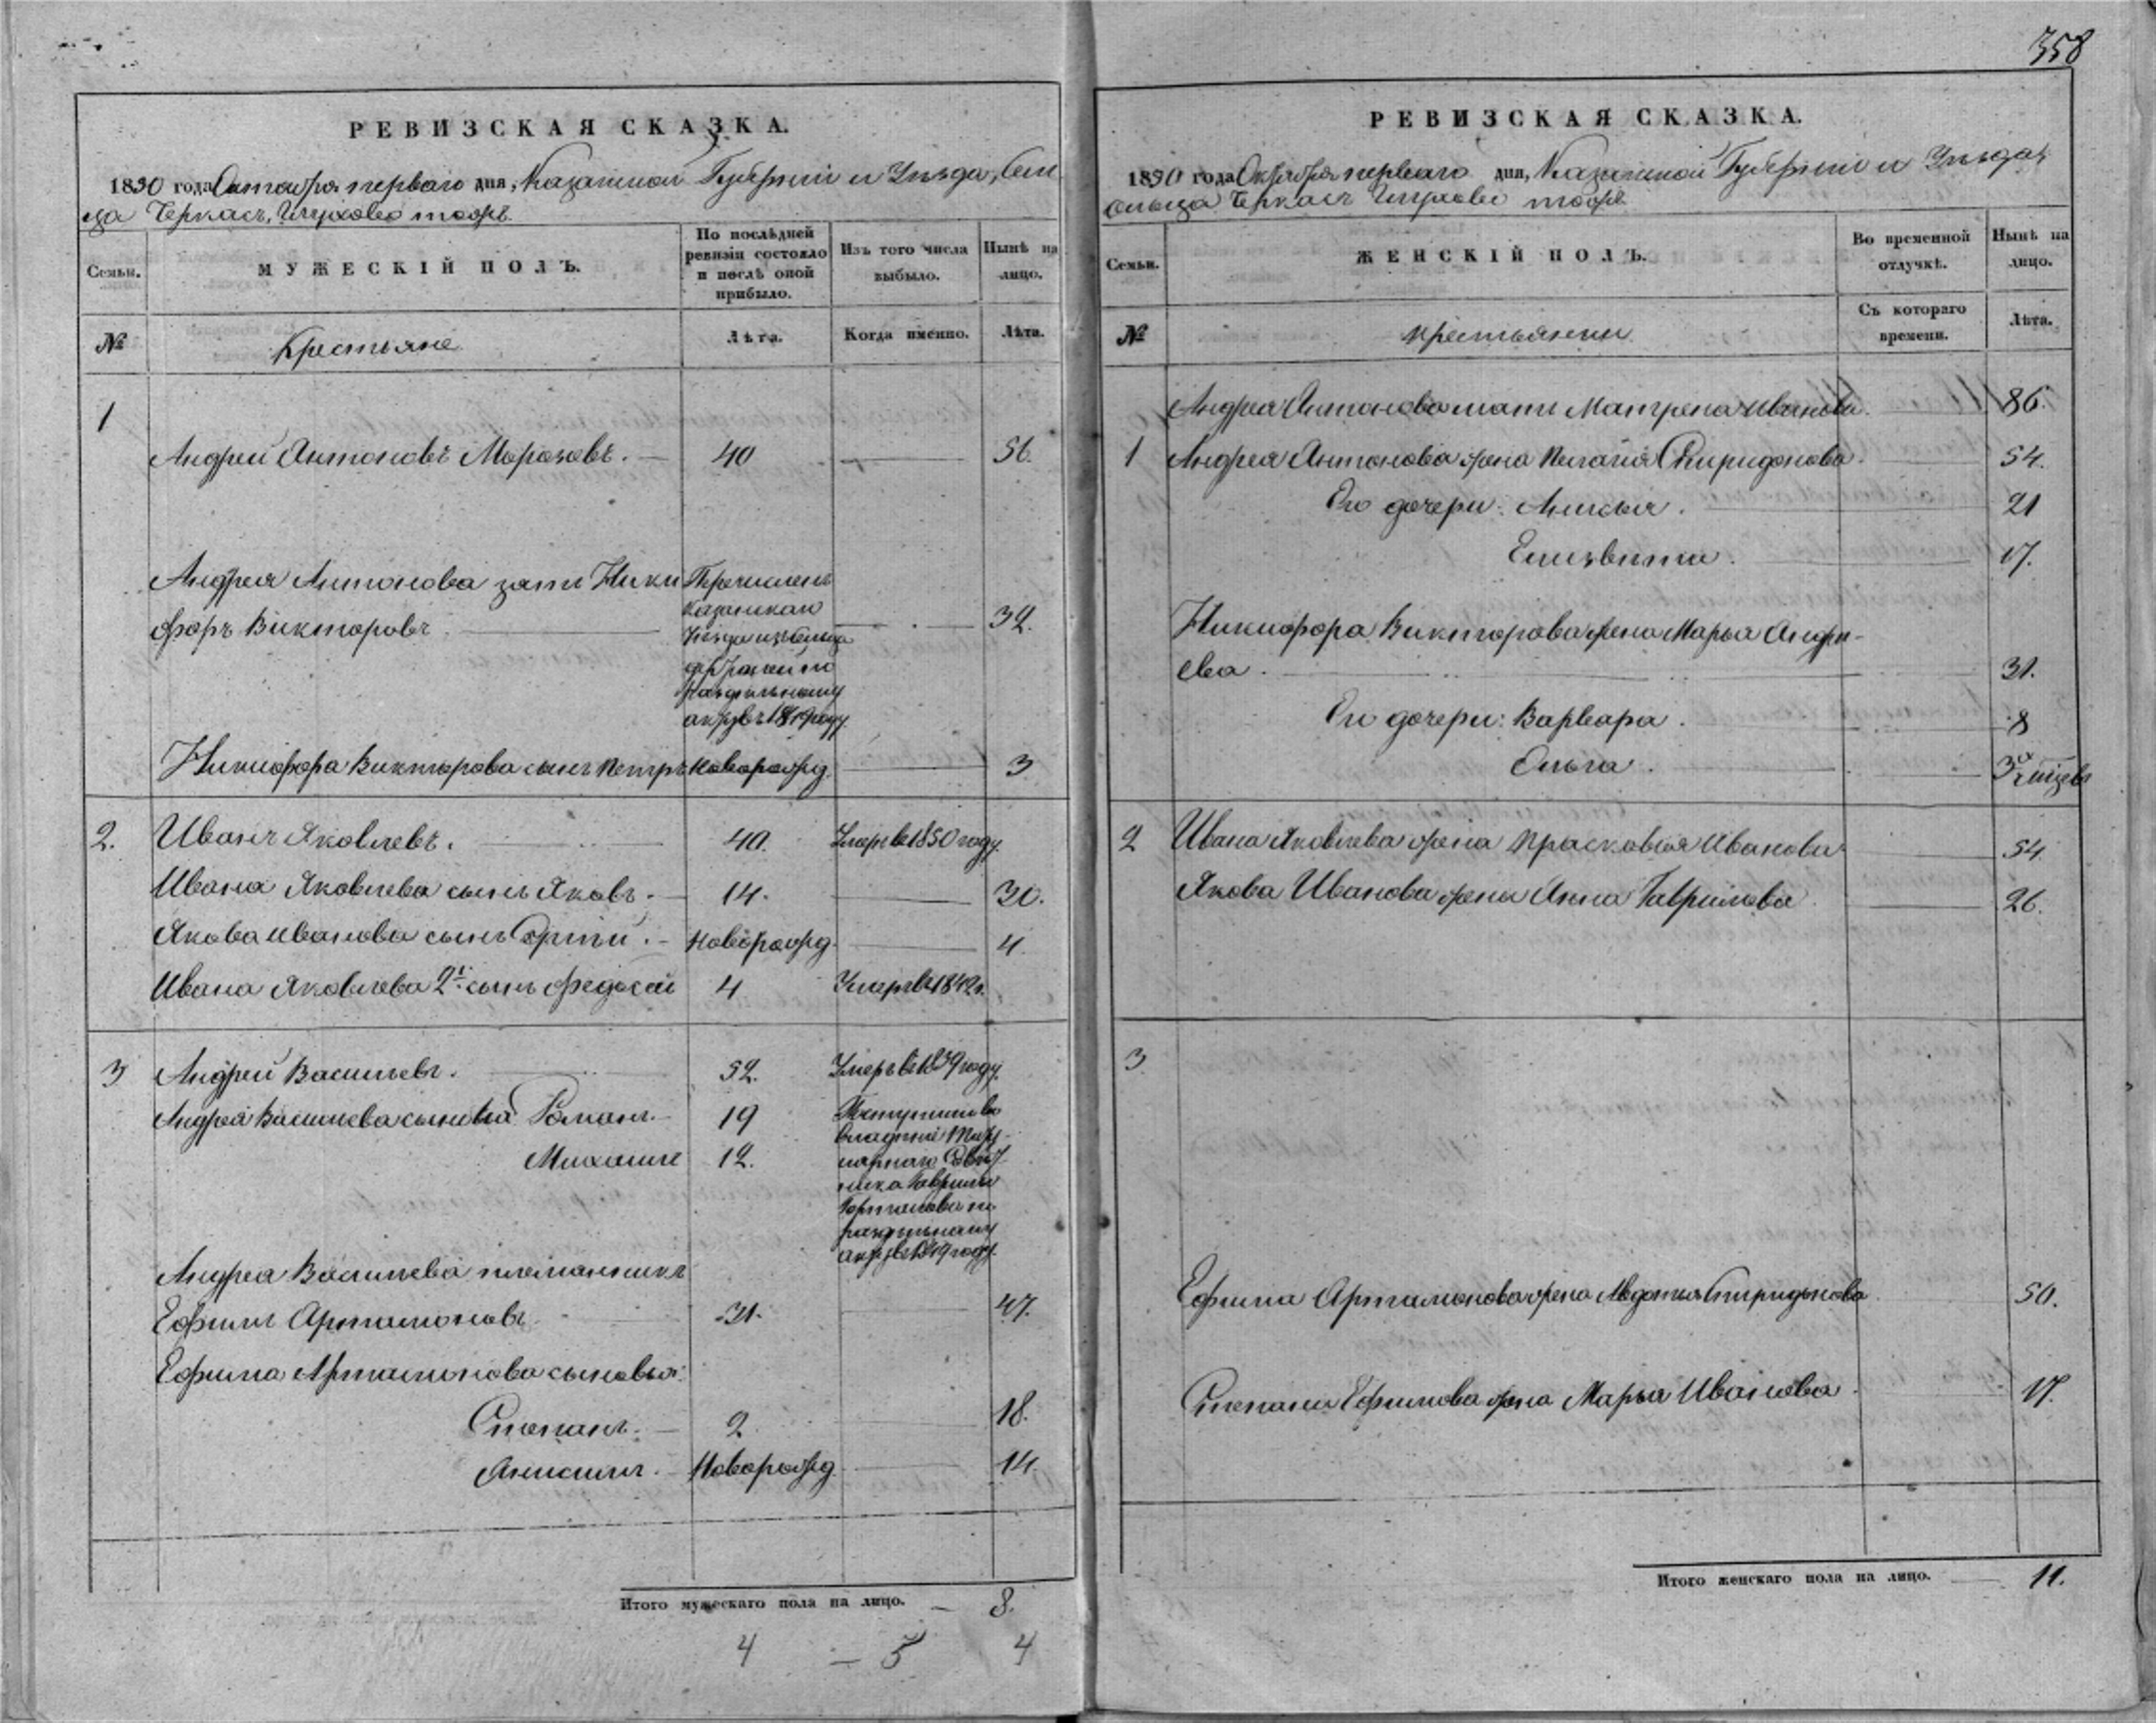 358
РЕВИЗСКАЯ СКАЗКА.
1850 года Октября перваго дня, Казанской Губерніи и Уѣзда, Сель
ца Черкасъ,
Семьи.
МУЖЕСКІЙ ПОЛЪ.
По послѣдней ревизіи состояло и послѣ оной прибыло.
Изъ того числа выбыло.
Нынѣ на лицо.
№
Крестьяне
Лѣта.
Когда именно.
Лѣта.
1
Андрей Антоновъ Морозовъ. 40 56.
Андрея Антонова зять Ники
форъ Викторовъ 32.
Перечисленъ
Казанскаго
Уѣзда изъ сельца
по
раздѣльному
акту въ 1849 году
Никифора Викторова сынъ Петръ Новорожд. 3
2. Иванъ Яковлевъ. 40. Умеръ въ 1850 году.
Ивана Яковлева сынъ Яковъ. 14. 30.
Якова Иванова сынъ Новорожд. 4.
Ивана Яковлева 2й сынъ Федосей 4 Умеръ въ 1842 г.
3 Андрей Васильевъ. 52. Умеръ въ 1839 году.
Андрея Васильева сыновья Романъ. 19
Михаилъ 12.
Поступили во
владѣніе
Гаврилы
по
раздѣльному
акту въ 1849 году.
Андрея Васильева племянникъ
Ефимъ Артамоновъ 31. 47.
Ефима Артамонова сыновья:
Степанъ. 2 18.
Анисимъ. Новорожд. 14.
Итого мужескаго пола на лицо. 8.
4 — 3 4
РЕВИЗСКАЯ СКАЗКА.
1850 года Октября перваго дня, Казанской Губерніи и Уѣзда,
сельца Черкасъ
Семьи.
ЖЕНСКІЙ ПОЛЪ.
Во временной отлучкѣ.
Нынѣ на лицо.
№
Крестьянки
Съ котораго времени.
Лѣта.
Андрея Антонова мать Матрена Иванова. 86.
1 Андрея Антонова жена Пелагія Спиридонова. 54.
Его дочери: Анисья. 21
Елизавета. 17.
Никифора Викторова жена Марья Андре-
ева. 31.
Его дочери: Варвара. 8
Ольга. 3х мѣсяцевъ
2 Ивана Яковлева жена Прасковья Иванова 54.
Якова Иванова жена Анна Гаврилова 26.
3
Ефима Артамонова жена Авдотья Спиридонова 50.
Степана Ефимова жена Марья Иванова. 17.
Итого женскаго пола на лицо. 11.